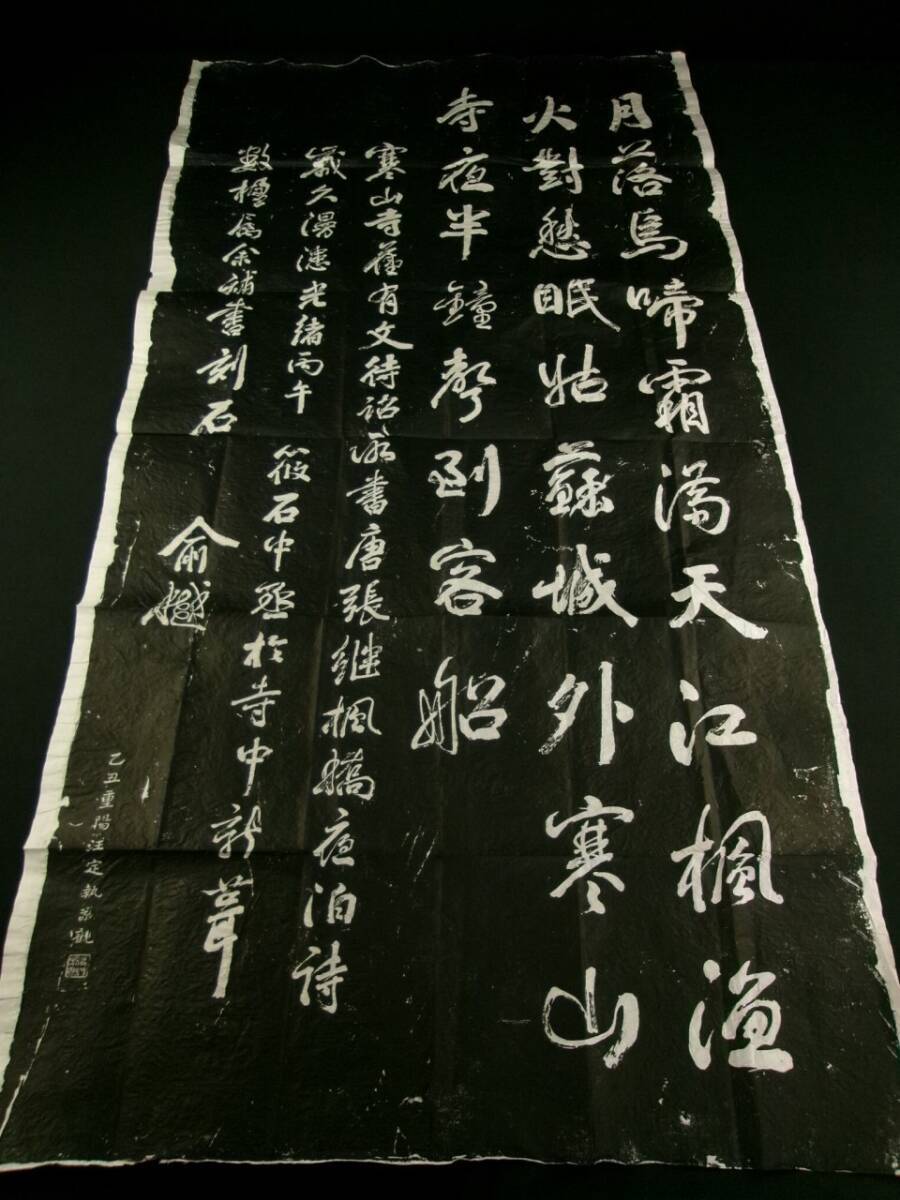 月落烏啼霜滿天江楓漁
火對愁眠姑蘇城外寒山
寺夜半鐘聲到客船
寒山寺舊有文待詔所書唐張繼楓橋夜泊詩
歲久漫漶光緒丙午 筱石中丞於寺中新葺
數楹屬余補書刻石
俞樾
乙丑重陽汪定執觀